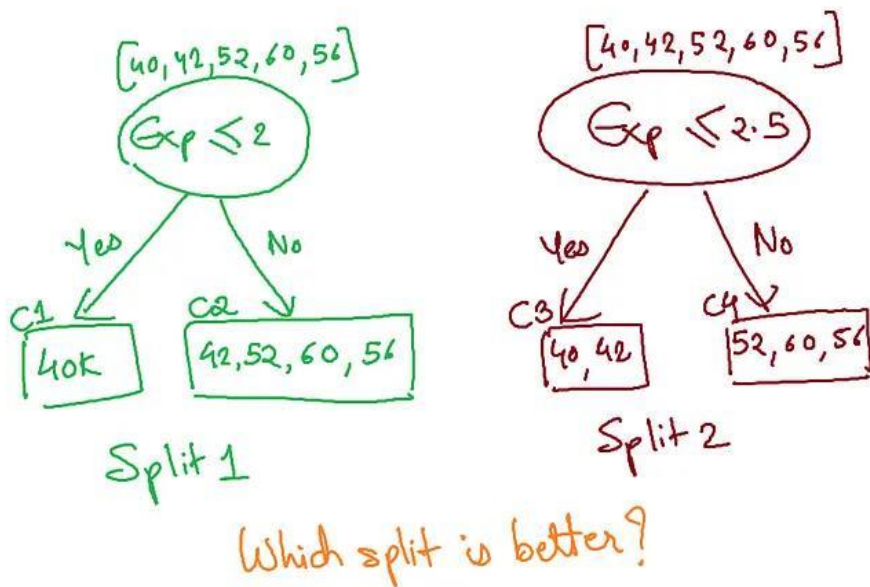 [40,42,52,60,56]
Exp ≤ 2
Yes
No
C1
C2
40K
42,52,60,56
Split 1
[40,42,52,60,56]
Exp ≤ 2.5
Yes
No
C3
C4
40,42
52,60,56
Split 2
Which split is better?